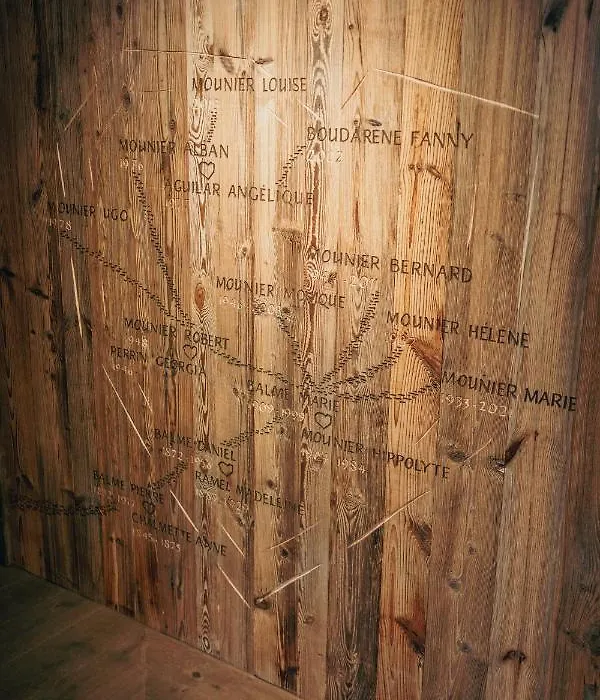 MOUNIER LOUISE
BOUDARENE FANNY
MOUNIER ALBAN
AGUILAR ANGÉLIQUE
MOUNIER UGO
1978
MOUNIER BERNARD
MOUNIER MONIQUE
MOUNIER HÉLÈNE
MOUNIER ROBERT
1948
PERRIN GEORGIA
MOUNIER MARIE
1933-202
BALME MARIE
1909-1998
MOUNIER HIPPOLYTE
1984
BALME DANIEL
1872
RAMEL MADELEINE
BALME PIERRE
CHALMETTE ANNE
1845-1875